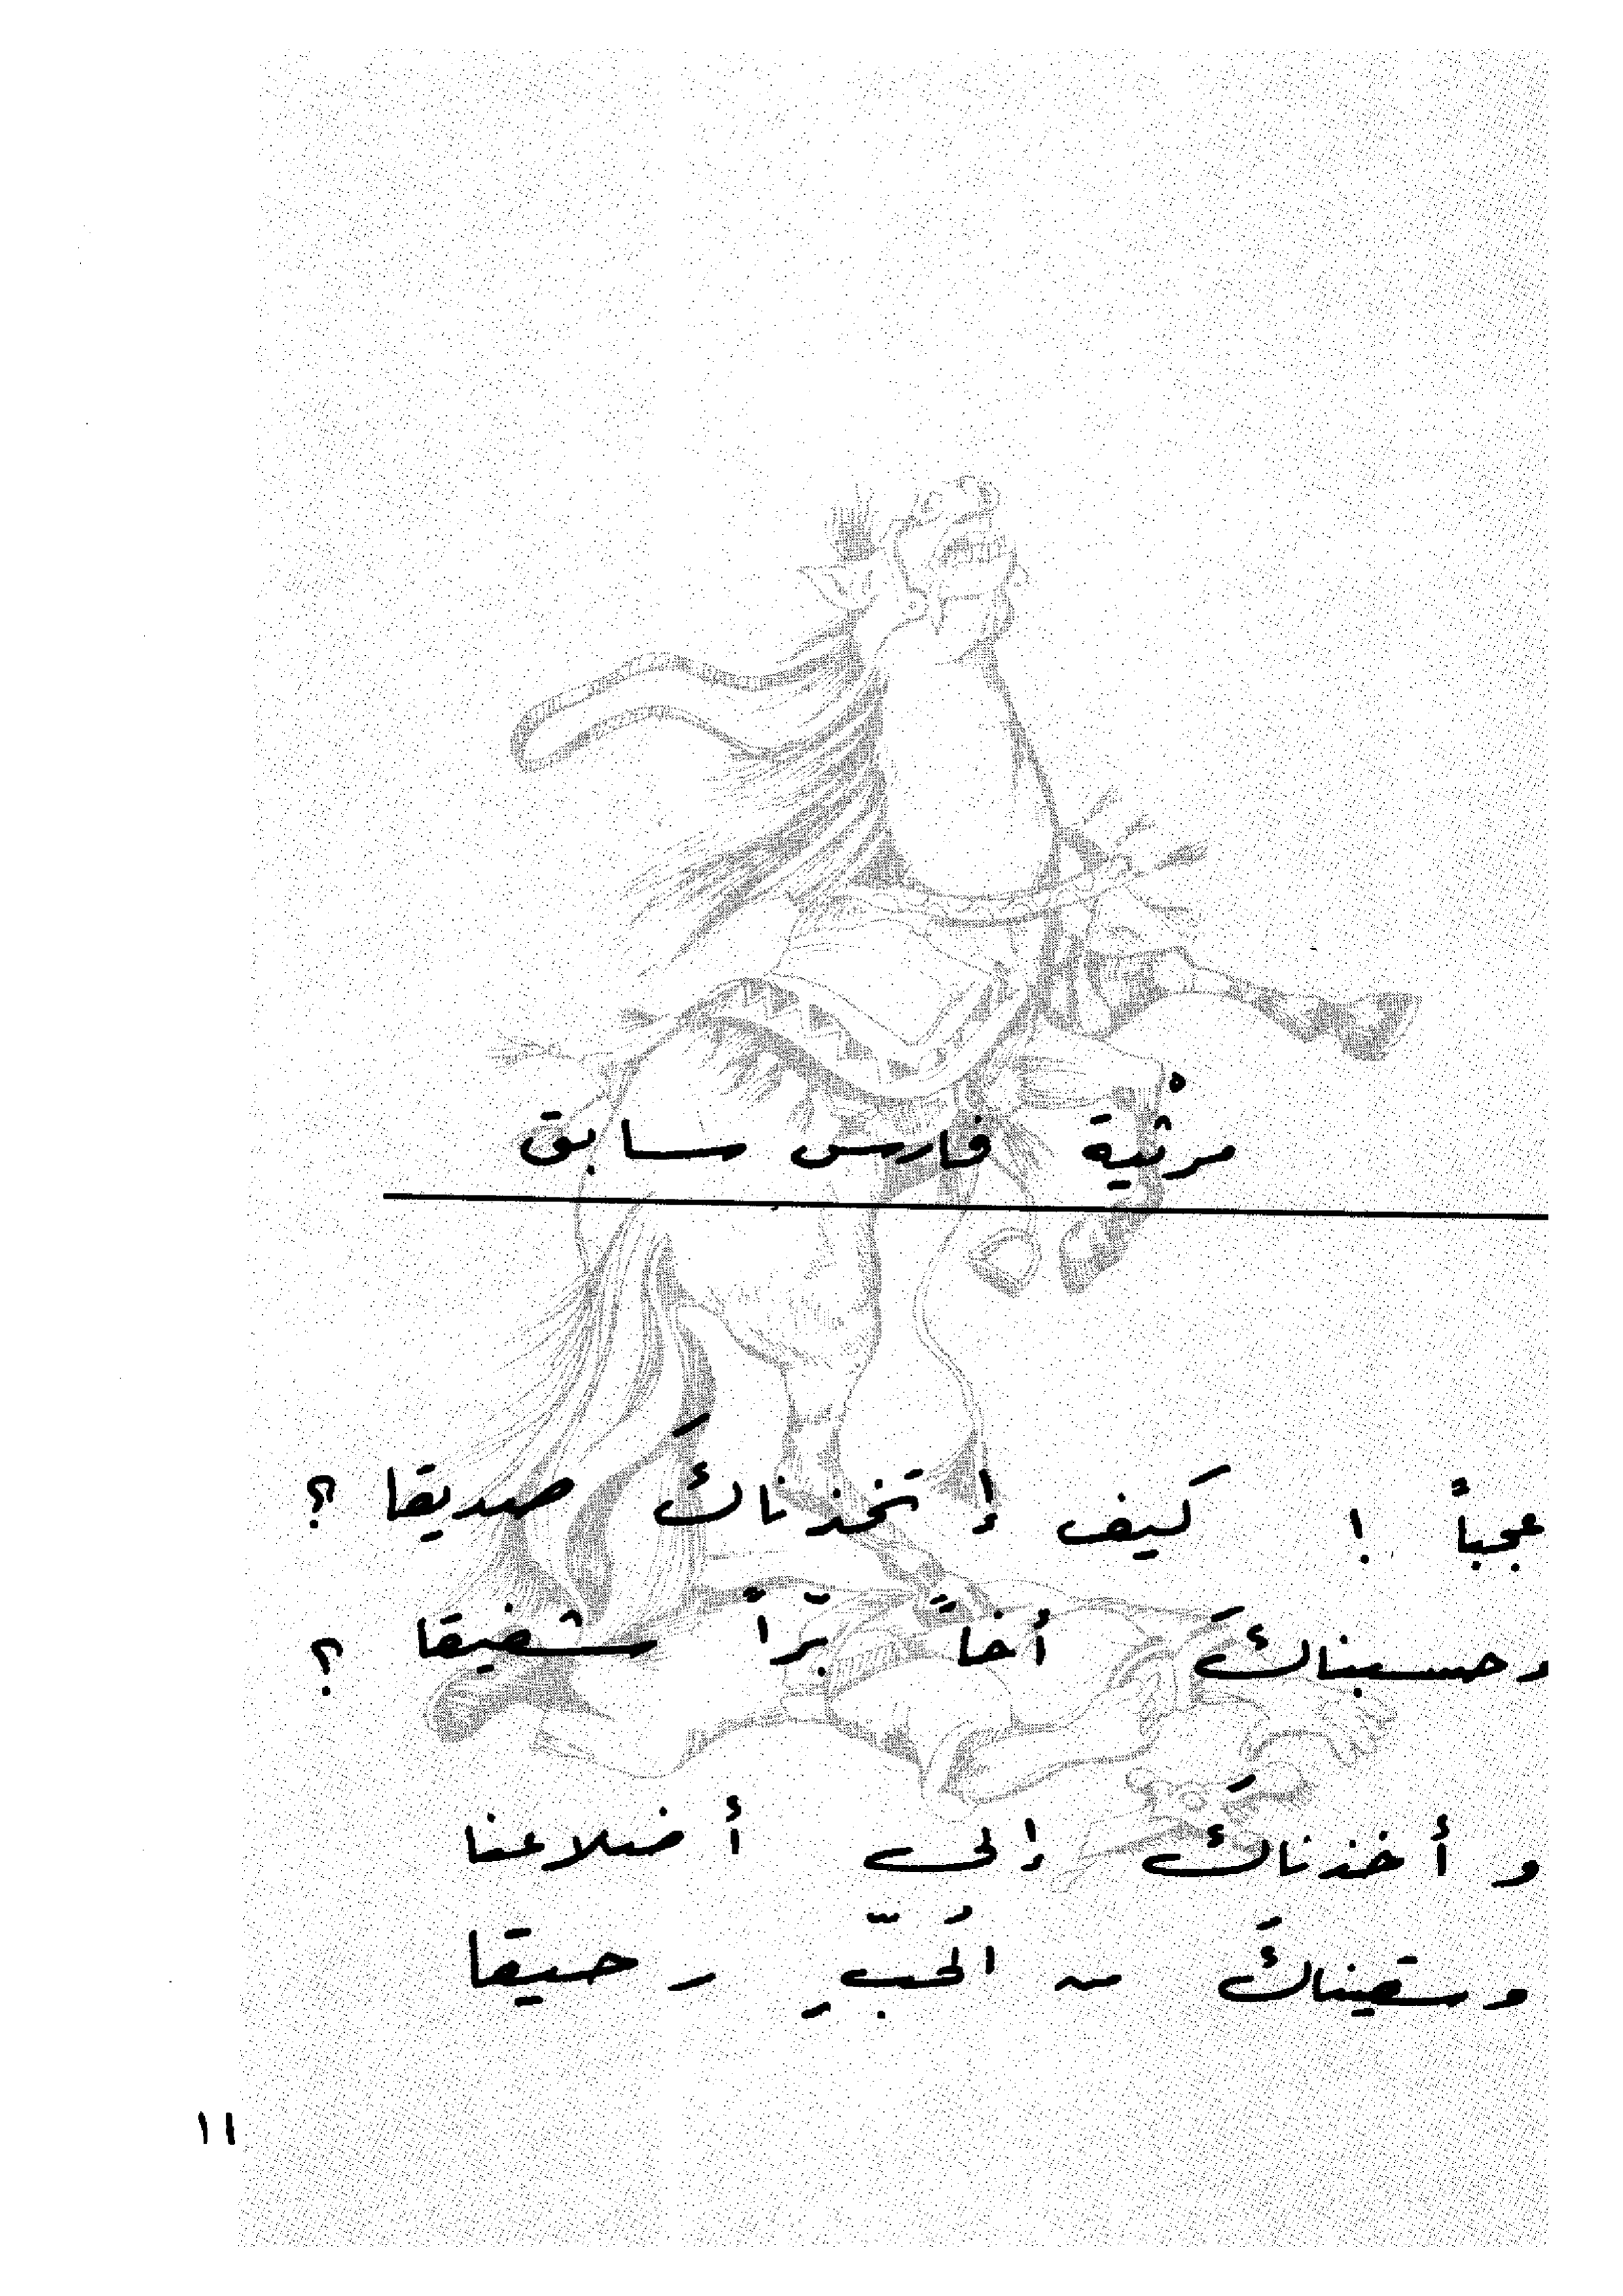 مرثْية فارس سابق
عجباً ! كيف إتخذناكَ صديقا ؟
وحسبناكَ أخاً بّراً شفيقا ؟
و أخذناكَ إلى أضلاعنا
وسقيناكَ من الحُبّ رحيقا
١١